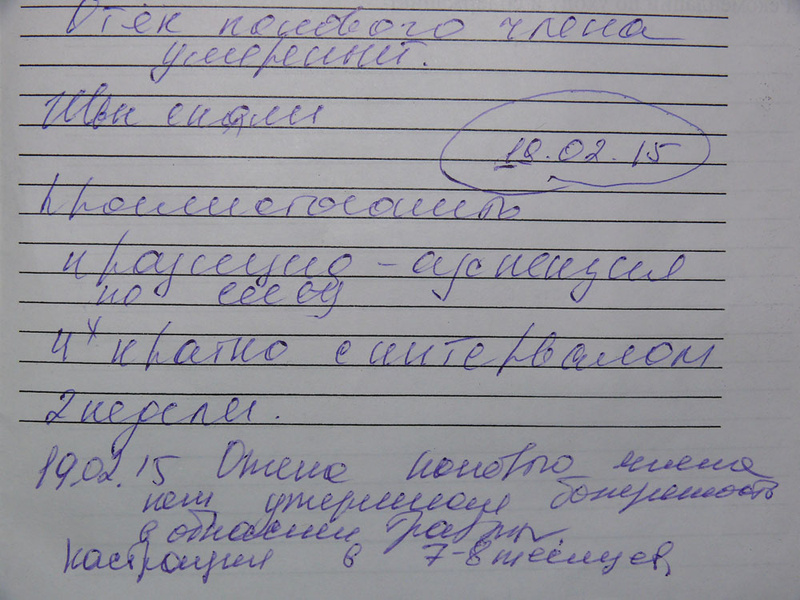 Отёк полового члена
умеренный.
Швы сняли
19.02.15
Проглистогонить
празицид-суспензия
по
4х кратно с интервалом
2 недели.
19.02.15 Отека полового члена
нет умеренная болезненность
в области раны
кастрация в 7-8 месяцев